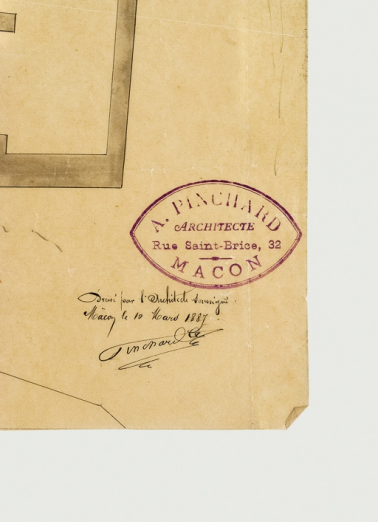 A. PINCHARD
ARCHITECTE
Rue Saint-Brice, 32
MACON
Dressé par l'Architecte soussigné
Mâcon le 10 Mars 1887
Pinchard